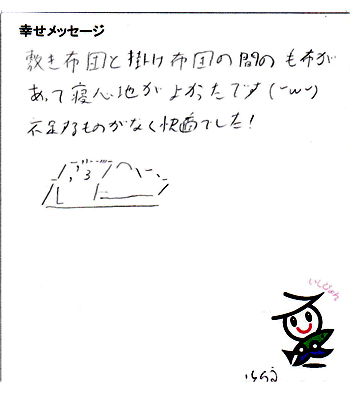 幸せメッセージ
敷き布団と掛け布団の間のも布が
あって寝心地がよかったです(-w-)
不足するものがなく快適でした!